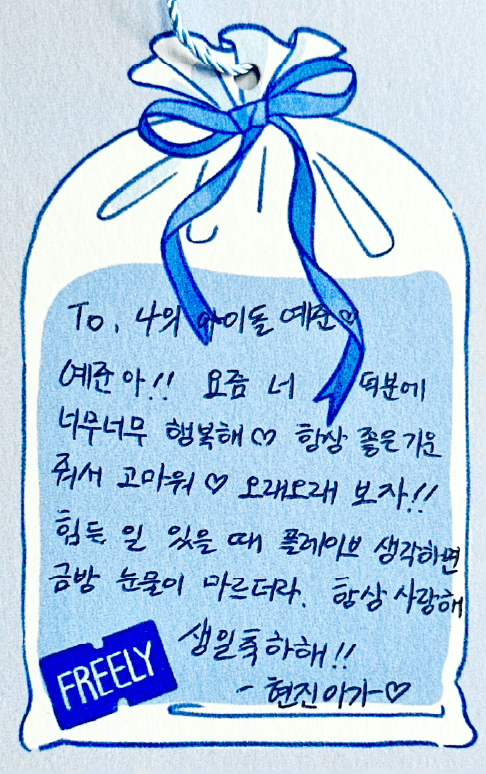 To. 나의 아이돌 예준♡
예준아!! 요즘 너 덕분에
너무너무 행복해♡ 항상 좋은 기운
줘서 고마워♡ 오래오래 보자!!
힘든 일 있을 때 플레이브 생각하면
금방 눈물이 마르더라. 항상 사랑해
생일축하해!!
FREELY
- 현진이가♡